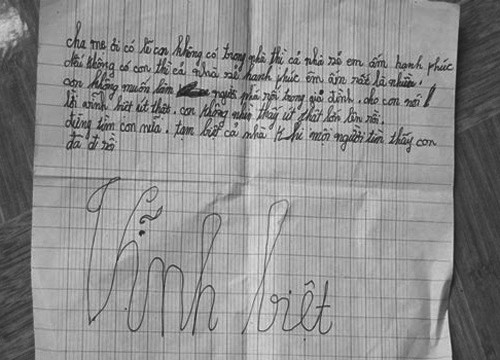 cha mẹ ơi có lẽ con không có trong nhà thì cả nhà sẽ êm ấm hạnh phúc
đời không có con thì cả nhà sẽ hạnh phúc êm ấm rất là nhiều.
con không muốn làm người phá rối trong gia đình. cho con nói
lời vĩnh biệt út thật. con không nhìn thấy út thật lớn lên rồi.
đừng tìm con nữa. tạm biệt cả nhà khi mọi người tìm thấy con
đã đi rồi
Vĩnh biệt